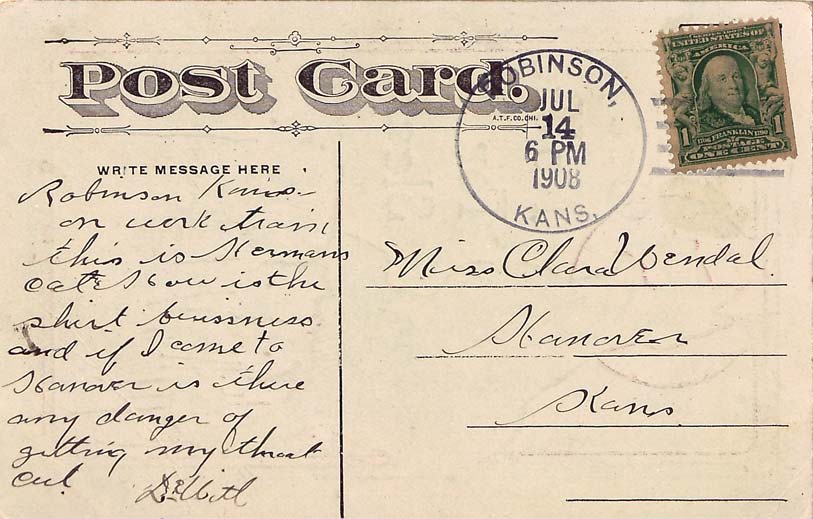 Post Card.
A.T.F.CO.CHI.
ROBINSON,
JUL
14
6 PM
1908
KANS.
UNITED STATES OF
AMERICA
1706 FRANKLIN 1790
POSTAGE
1 ONE CENT 1
WRITE MESSAGE HERE
Robinson Kans
on work train
this is Hermans
cat How is the
shirt buissness
and if I come to
Hanover is there
any danger of
getting my throat
cut
DeWitt
Miss Clara Wendal.
Hanover
Kans.